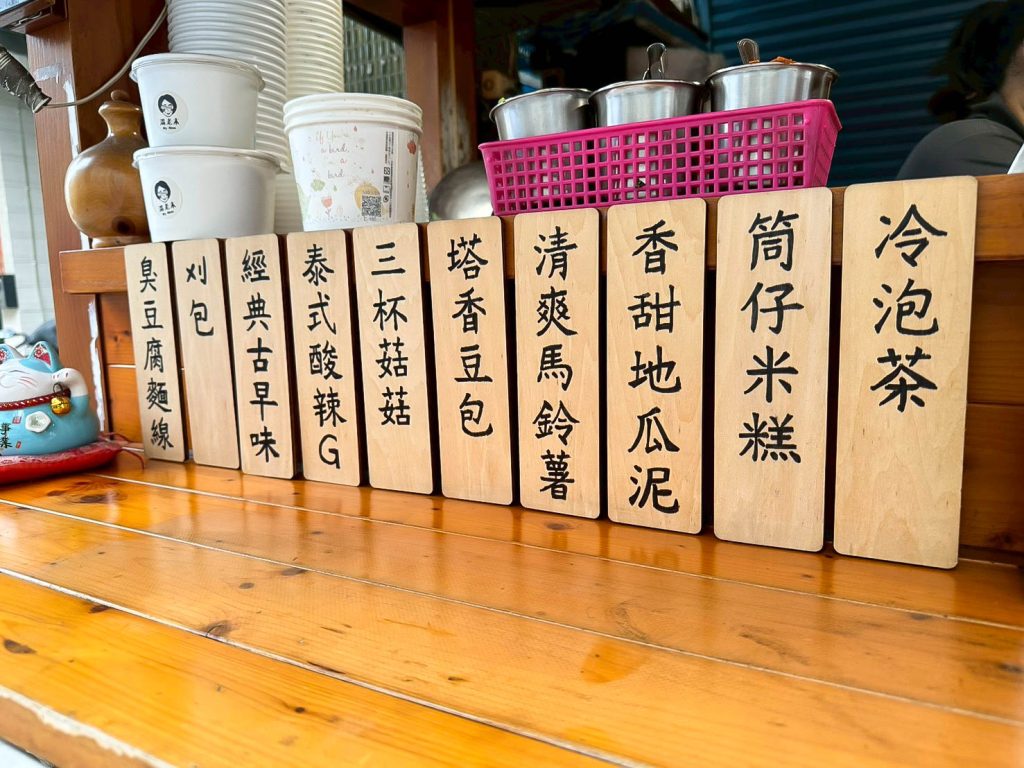 臭豆腐麵線
刈包
經典古早味
泰式酸辣G
三杯菇菇
塔香豆包
清爽馬鈴薯
香甜地瓜泥
筒仔米糕
冷泡茶
If You're
a
bird
I'm a
bird.